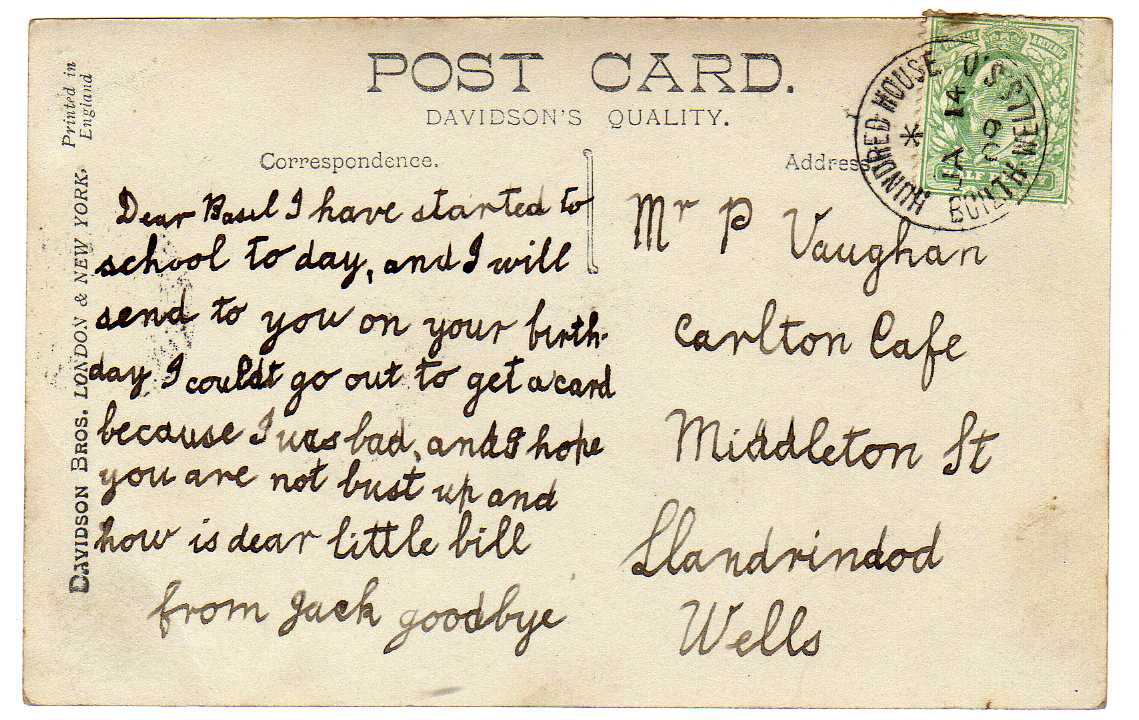 POST CARD.
DAVIDSON'S QUALITY.
Printed in
England
DAVIDSON BROS. LONDON & NEW YORK.
Correspondence.
Address
Dear Basil I have started to
school to day, and I will
send to you on your birth-
day I couldt go out to get a card
because I was bad, and I hope
you are not bust up and
how is dear little bill
from Jack goodbye
Mr P Vaughan
Carlton Cafe
Middleton St
Llandrindod
Wells
HUNDRED HOUSE
BUILTH WELLS S.O
JA 14